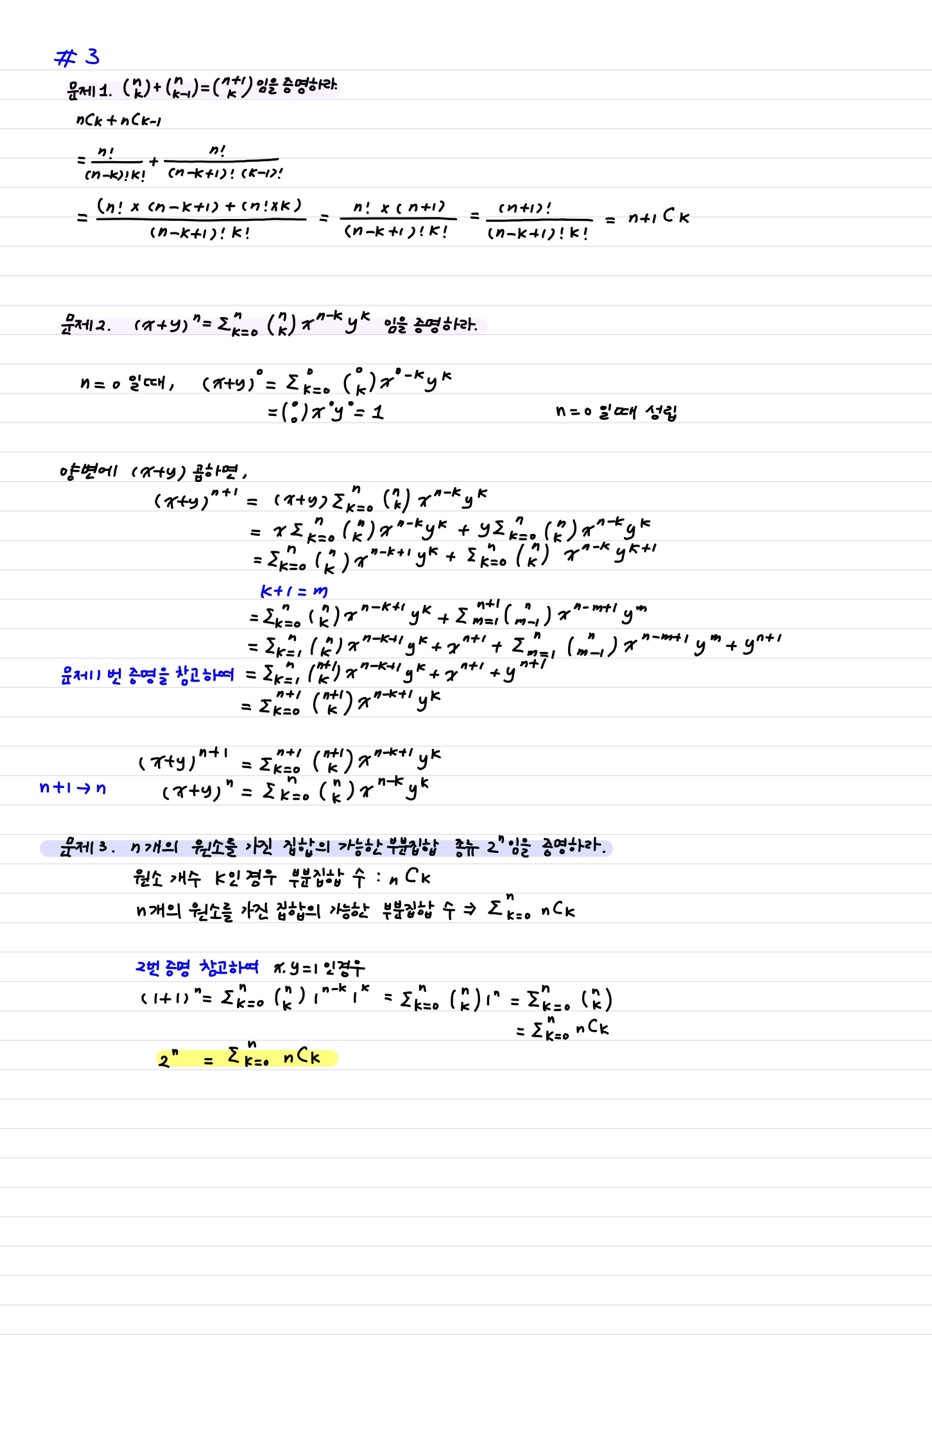 # 3
문제 1. (n k) + (n k-1) = (n+1 k) 임을 증명하라.
nCk + nCk-1
= n! / (n-k)! k! + n! / (n-k+1)! (k-1)!
= (n! × (n-k+1) + (n! × k) / (n-k+1)! k! = n! × (n+1) / (n-k+1)! k! = (n+1)! / (n-k+1)! k! = n+1 Ck
문제 2. (x+y)^n = Σ_{k=0}^n (n k) x^{n-k} y^k 임을 증명하라.
n=0 일때, (x+y)^0 = Σ_{k=0}^0 (0 k) x^{0-k} y^k
= (0 0) x^0 y^0 = 1 n=0 일때 성립
양변에 (x+y) 곱하면,
(x+y)^{n+1} = (x+y) Σ_{k=0}^n (n k) x^{n-k} y^k
= x Σ_{k=0}^n (n k) x^{n-k} y^k + y Σ_{k=0}^n (n k) x^{n-k} y^k
= Σ_{k=0}^n (n k) x^{n-k+1} y^k + Σ_{k=0}^n (n k) x^{n-k} y^{k+1}
k+1 = m
= Σ_{k=0}^n (n k) x^{n-k+1} y^k + Σ_{m=1}^{n+1} (n m-1) x^{n-m+1} y^m
= Σ_{k=1}^n (n k) x^{n-k+1} y^k + x^{n+1} + Σ_{m=1}^n (n m-1) x^{n-m+1} y^m + y^{n+1}
문제 1번 증명을 참고하여 = Σ_{k=1}^n (n+1 k) x^{n-k+1} y^k + x^{n+1} + y^{n+1}
= Σ_{k=0}^{n+1} (n+1 k) x^{n-k+1} y^k
(x+y)^{n+1} = Σ_{k=0}^{n+1} (n+1 k) x^{n-k+1} y^k
n+1 → n (x+y)^n = Σ_{k=0}^n (n k) x^{n-k} y^k
문제 3. n개의 원소를 가진 집합의 가능한 부분집합 종류 2^n 임을 증명하라.
원소 개수 k인 경우 부분집합 수 : nCk
n개의 원소를 가진 집합의 가능한 부분집합 수 ⇒ Σ_{k=0}^n nCk
2번 증명 참고하여 x, y = 1 인경우
(1+1)^n = Σ_{k=0}^n (n k) 1^{n-k} 1^k = Σ_{k=0}^n (n k) 1^n = Σ_{k=0}^n (n k)
= Σ_{k=0}^n nCk
2^n = Σ_{k=0}^n nCk